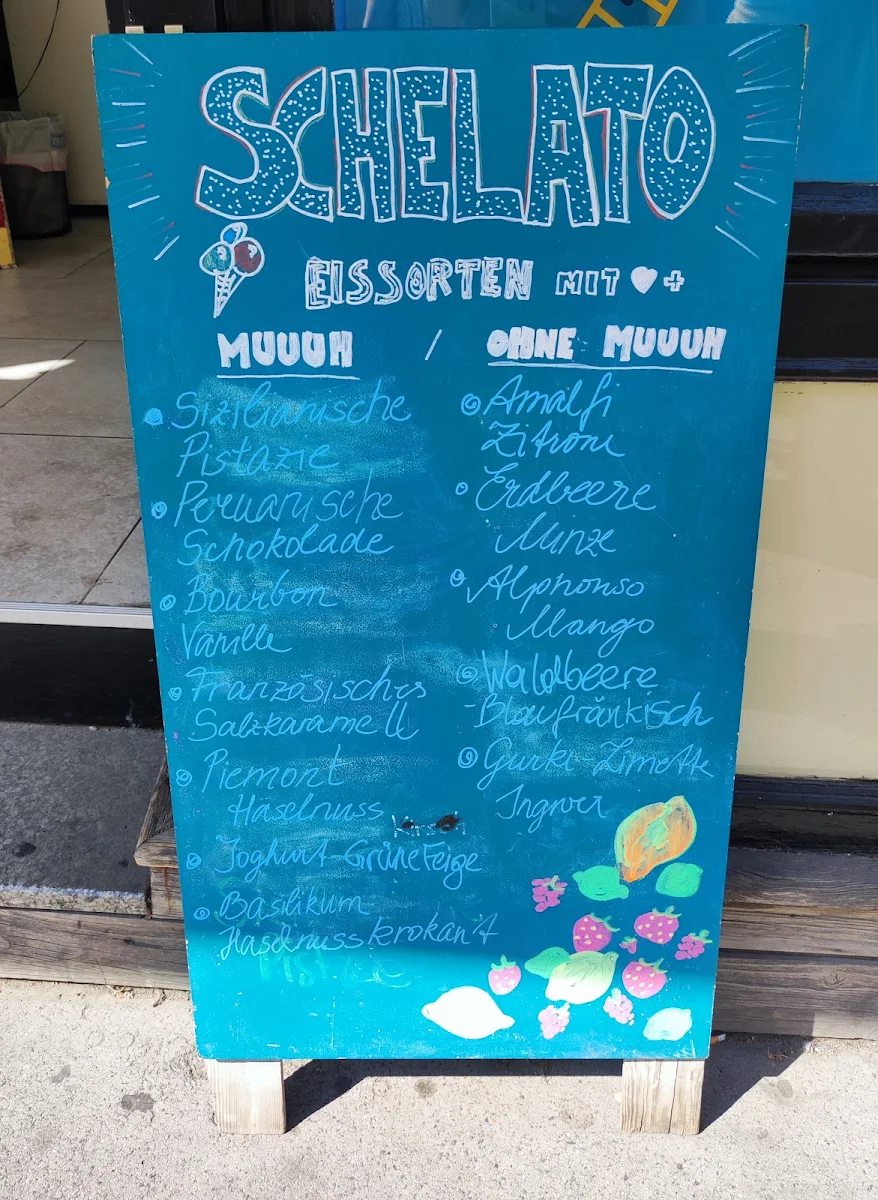 SCHELATO
EISSORTEN MIT ♥+
MUUUH / OHNE MUUUH
Sizilianische
Pistazie
Peruanische
Schokolade
Bourbon
Vanille
Französisches
Salzkaramell
Piemont
Haselnuss
Joghurt-Grüne Feige
Basilikum
Haselnusskrokant
Amalfi
Zitrone
Erdbeere
Minze
Alphonso
Mango
Waldbeere
-Blaufränkisch
Gurke-Limette
Ingwer